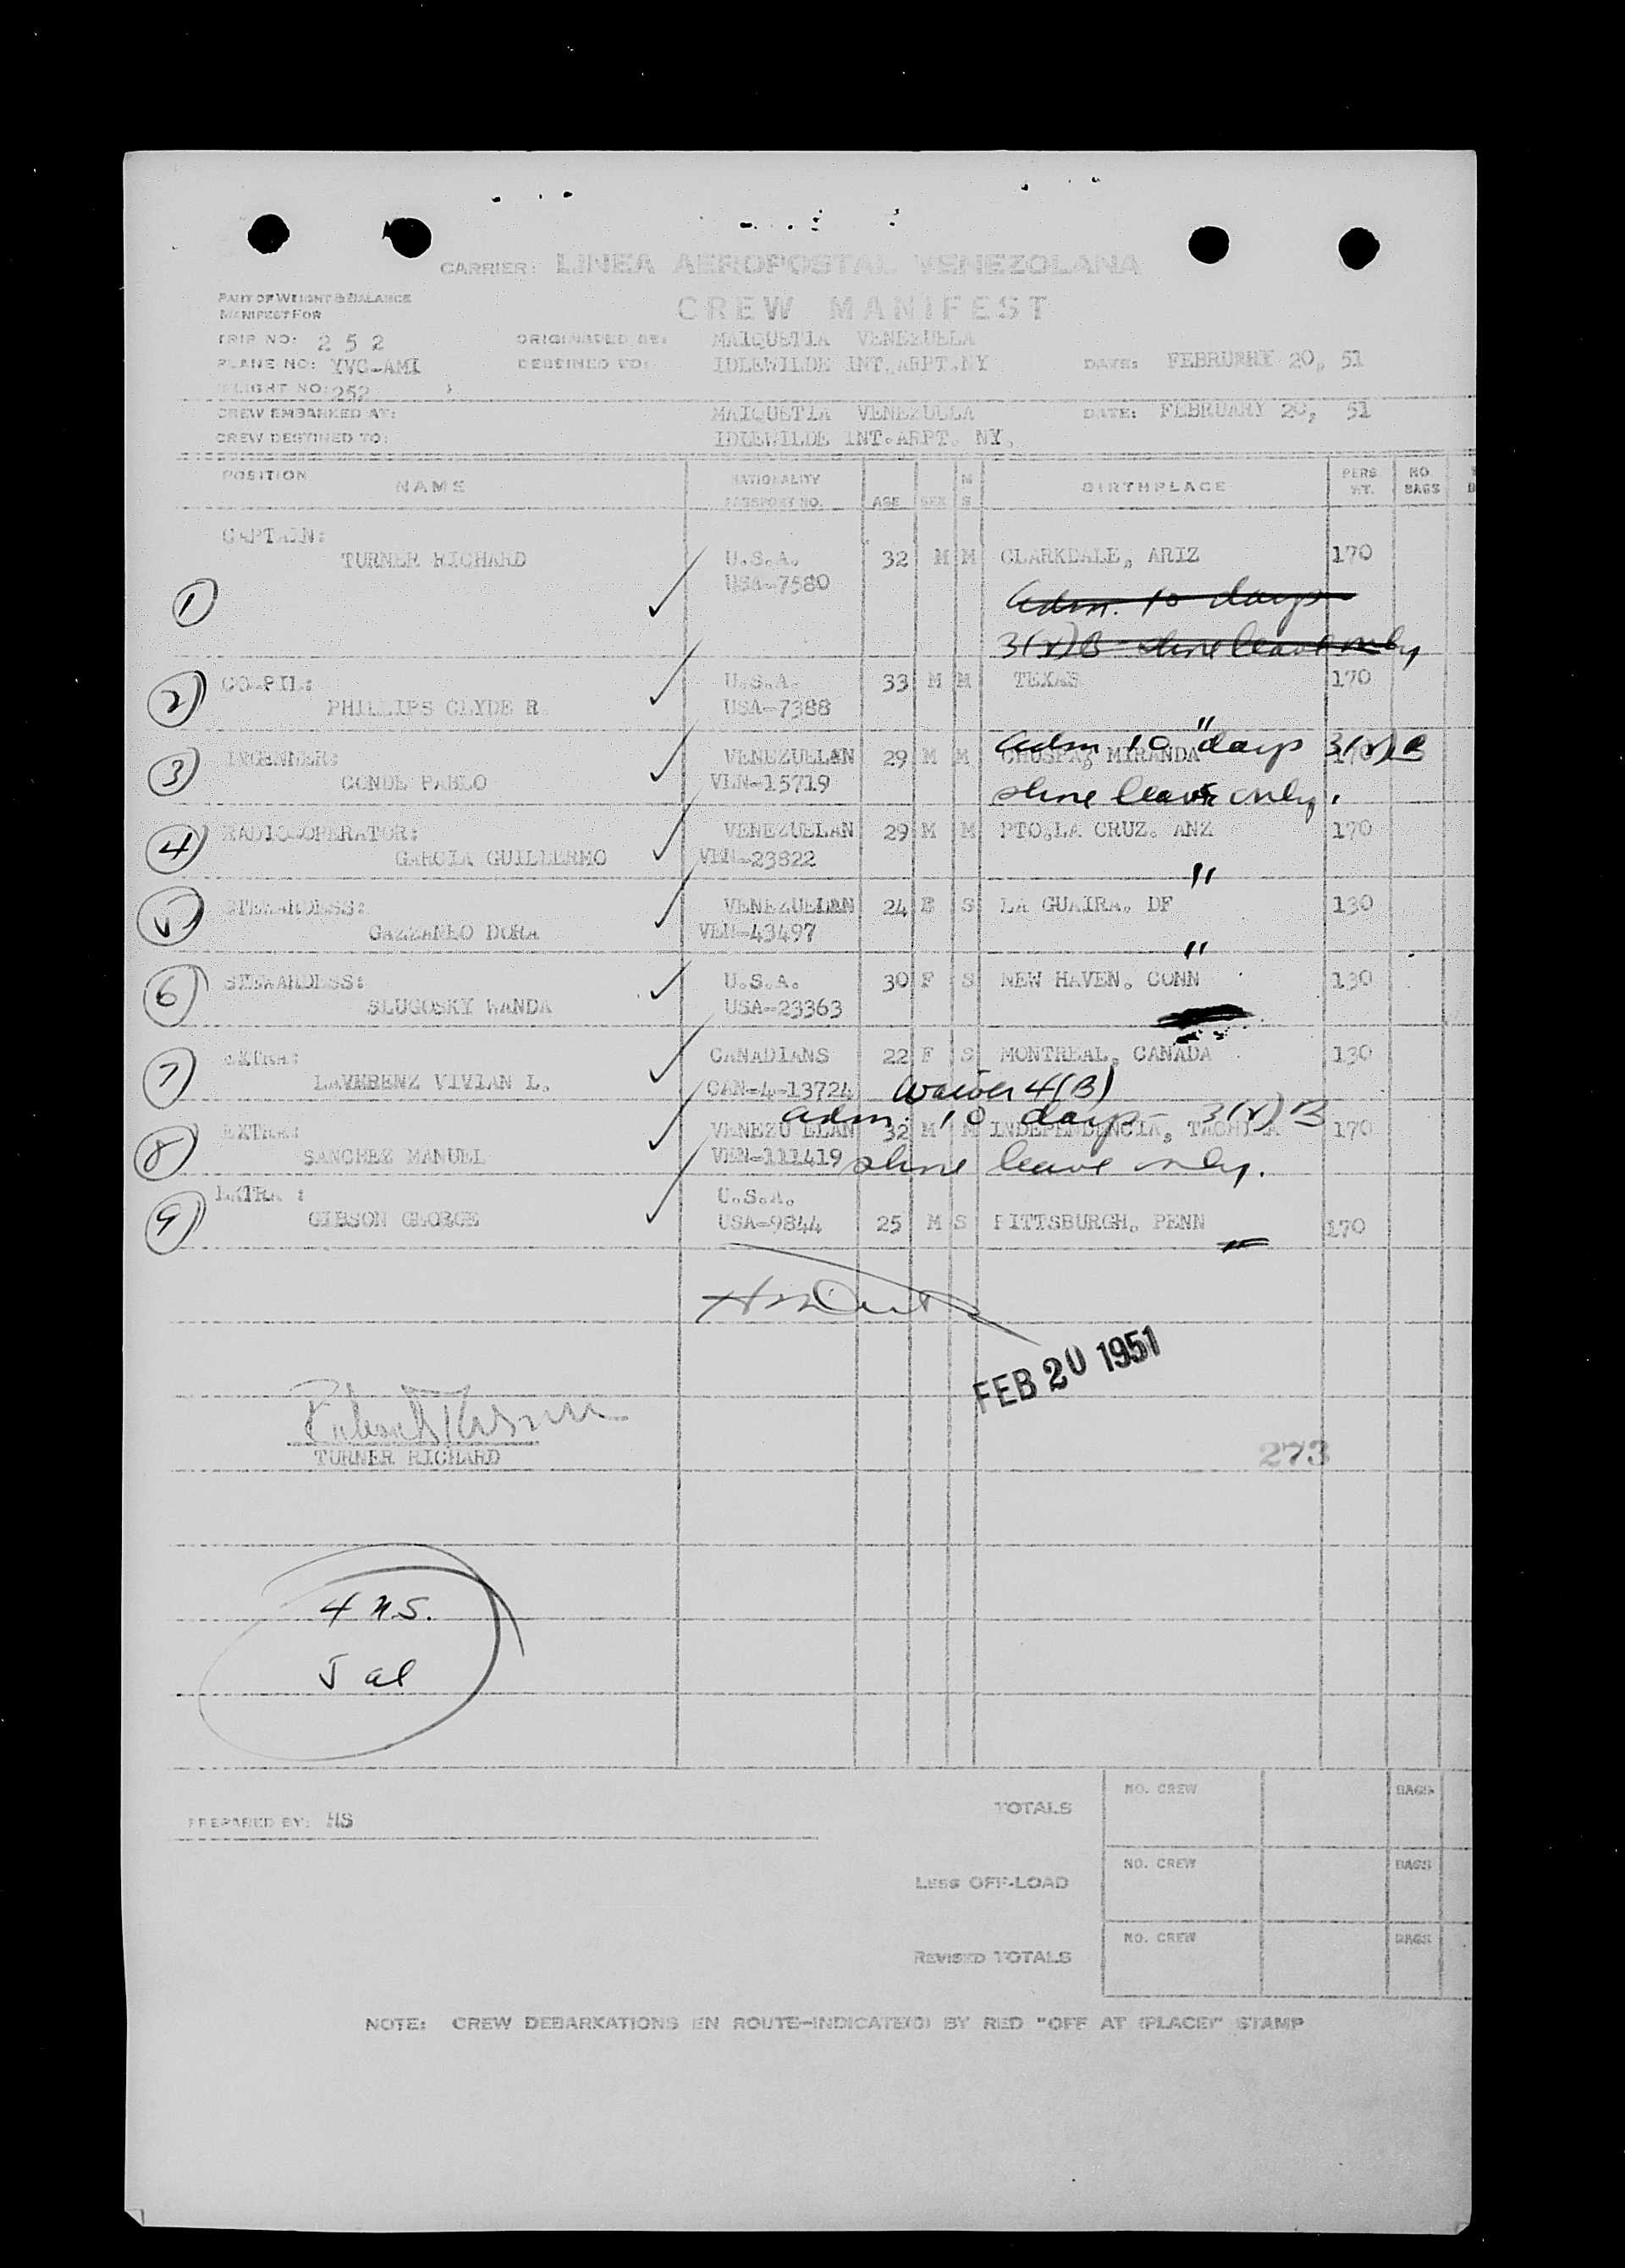 CARRIER: LINEA AEROPOSTAL VENEZOLANA
PART OF WEIGHT & BALANCE
MANIFEST FOR
CREW MANIFEST
TRIP NO: 2 5 2 ORIGINATED AT: MAIQUETIA VENEZUELA
PLANE NO: YVC-AMI DESTINED TO: IDLEWILDE INT.ARPT.NY DATE: FEBRUARY 20, 51
FLIGHT NO: 252
CREW EMBARKED AT: MAIQUETIA VENEZUELA DATE: FEBRUARY 20, 51
CREW DESTINED TO: IDLEWILDE INT.ARPT. NY.
POSITION NAME NATIONALITY PASSPORT NO. AGE SEX M S BIRTHPLACE PERS WT. NO. BAGS
CAPTAIN:
1 TURNER RICHARD U.S.A. 32 M M CLARKDALE, ARIZ 170
USA-7580
Adm. 10 days
3(r)B shore leave only
2 CO-PIL: U.S.A. 33 M M TEXAS 170
PHILLIPS CLYDE R. USA-7388
Adm 10 days 3(r)B
3 INGENIER: VENEZUELAN 29 M M CHUSPA, MIRANDA 170
CONDE PABLO VEN-15719
shore leave only.
4 RADIO-OPERATOR: VENEZUELAN 29 M M PTO.LA CRUZ. ANZ 170
GARCIA GUILLERMO VEN-23822
"
5 STEWARDESS: VENEZUELAN 24 F S LA GUAIRA. DF 130
GAZZANEO DORA VEN-43497
"
6 STEWARDESS: U.S.A. 30 F S NEW HAVEN. CONN 130
SLUGOSKY WANDA USA-23363
7 EXTRA: CANADIANS 22 F S MONTREAL, CANADA 130
LAVERENZ VIVIAN L. CAN-4-13724
Waiver 4(B)
Adm. 10 days - 3(r)B
8 EXTRA: VENEZUELAN 32 M M INDEPENDENCIA, TACHIRA 170
SANCHEZ MANUEL VEN-111419
shore leave only.
9 EXTRA : U.S.A.
GIBSON GEORGE USA-9844 25 M S PITTSBURGH, PENN 170
FEB 20 1951
TURNER RICHARD
273
4 U.S.
5 al
PREPARED BY: HS
TOTALS NO. CREW BAGS
LESS OFF-LOAD NO. CREW BAGS
REVISED TOTALS NO. CREW BAGS
NOTE: CREW DEBARKATIONS EN ROUTE-INDICATE(D) BY RED "OFF AT (PLACE)" STAMP